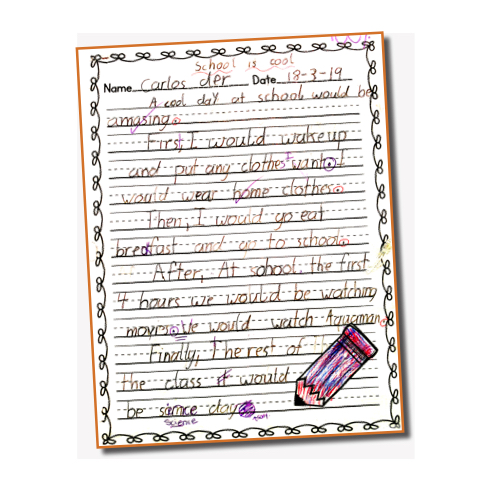 School is cool
Name Carlos dfr Date 18-3-19
A cool day at school would be
amazing.
First, I would wake up
and put any clothes I want. I
would wear home clothes.
Then, I would go eat
breakfast and go to school.
After, At school. the first
4 hours we would be watching
movies. We would watch Aquaman.
Finally, The rest of
the class it would
be sience day
Science